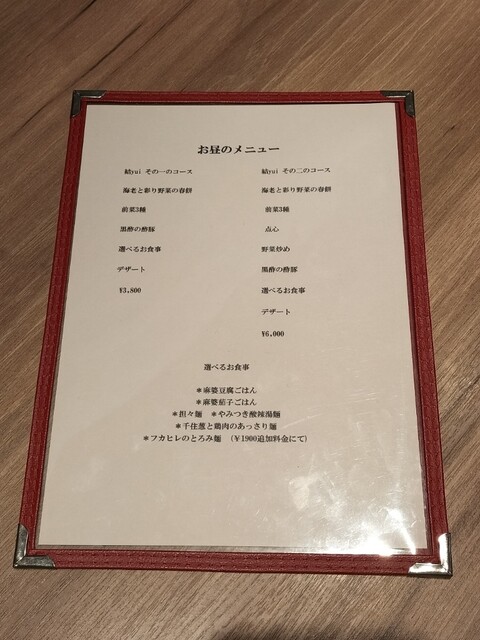 お昼のメニュー
結yui その一のコース
海老と彩り野菜の春餅
前菜3種
黒酢の酢豚
選べるお食事
デザート
¥3,800
結yui その二のコース
海老と彩り野菜の春餅
前菜3種
点心
野菜炒め
黒酢の酢豚
選べるお食事
デザート
¥6,000
選べるお食事
＊麻婆豆腐ごはん
＊麻婆茄子ごはん
＊担々麺　＊やみつき酸辣湯麺
＊千住葱と鶏肉のあっさり麺
＊フカヒレのとろみ麺　（¥1900追加料金にて）